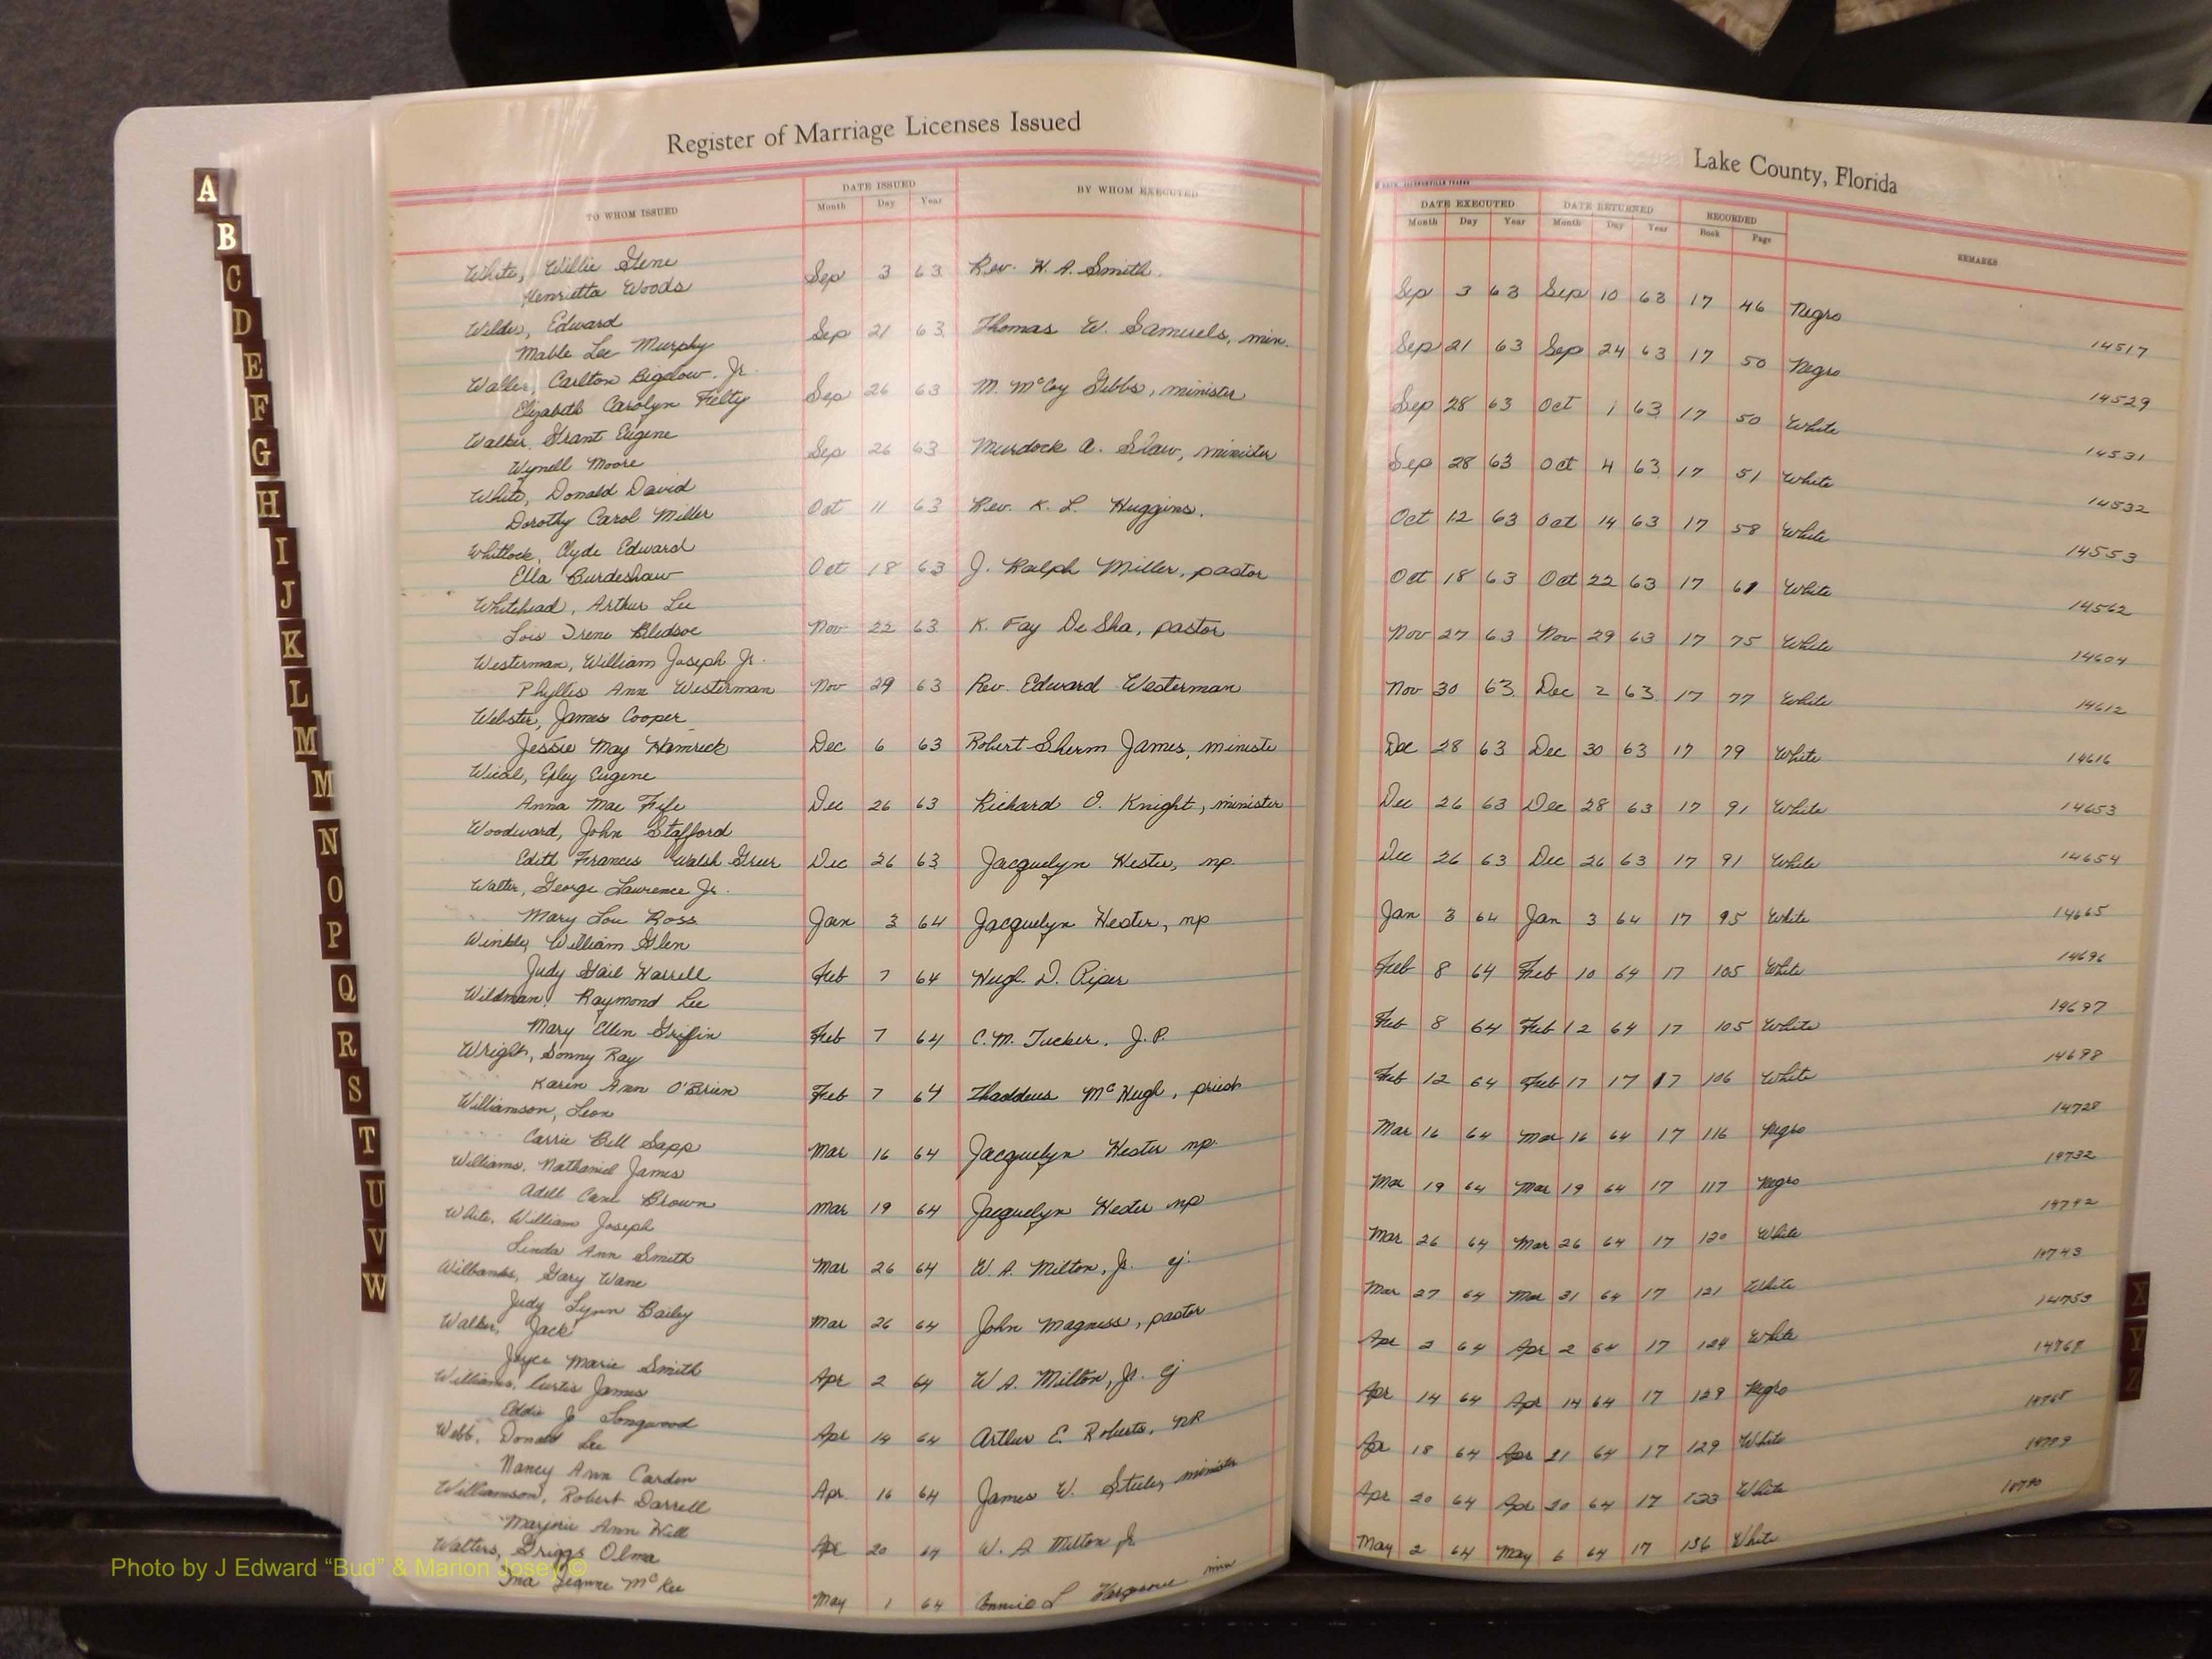 Register of Marriage Licenses Issued
TO WHOM ISSUED DATE ISSUED BY WHOM EXECUTED
Month Day Year
White, Willie Gene
Henrietta Woods Sep 3 63 Rev. H. A. Smith.
Wilder, Edward
Mable Lee Murphy Sep 21 63 Thomas W. Samuels, min.
Waller, Carlton Bigelow. Jr.
Elizabeth Carolyn Felty Sep 26 63 M. McCoy Gibbs, minister
Walker, Grant Eugene
Wynell Moore Sep 26 63 Murdock A. Shaw, minister
White, Donald David
Dorothy Carol Miller Oct 11 63 Rev. K. L. Huggins.
Whitlock, Clyde Edward
Ella Burdeshaw Oct 18 63 J. Ralph Miller, pastor
Whitehead, Arthur Lee
Lois Irene Bledsoe Nov 22 63 K. Fay DeSha, pastor
Westerman, William Joseph Jr.
Phyllis Ann Westerman Nov 29 63 Rev. Edward Westerman
Webster, James Cooper
Jessie May Hamrick Dec 6 63 Robert Sherm James, ministe
Wical, Epley Eugene
Anna Mae Fife Dec 26 63 Richard O. Knight, minister
Woodward, John Stafford
Edith Frances Walsh Greer Dec 26 63 Jacquelyn Hester, np.
Walter, George Laurence Jr.
Mary Lou Ross Jan 3 64 Jacquelyn Hester, np
Winkley William Glen
Judy Gail Harrell Feb 7 64 Hugh D. Piper
Wildman, Raymond Lee
Mary Ellen Griffin Feb 7 64 C. M. Tucker, J. P.
Wright, Sonny Ray
Karin Ann O'Brien Feb 7 64 Thaddeus McHugh, priest
Williamson, Leon
Carrie Bell Sapp Mar 16 64 Jacquelyn Hester np.
Williams, Nathaniel James
Adell Cane Brown Mar 19 64 Jacquelyn Hester np
White, William Joseph
Linda Ann Smith Mar 26 64 W. A. Milton, Jr. cj.
Wilbanks, Gary Wane
Judy Lynn Bailey Mar 26 64 John Magness, pastor
Walker, Jack
Joyce Marie Smith Apr 2 64 W A. Milton, Jr. cj
Williams, Curtis James
Eddie J Longwood Apr 14 64 Arthur E. Roberts, NP
Webb, Donald Lee
Nancy Ann Carden Apr. 16 64 James W. Steeley minister
Williamson, Robert Darrell
Marjorie Ann Will Apr 20 64 W. A Milton Jr
Walters, Griggs Olma
Ina Jeanne McKee May 1 64 L min
Lake County, Florida
DATE EXECUTED DATE RETURNED RECORDED REMARKS
Month Day Year Month Day Year Book Page
Sep 3 63 Sep 10 63 17 46 Negro 14517
Sep 21 63 Sep 24 63 17 50 Negro 14529
Sep 28 63 Oct 1 63 17 50 White 14531
Sep 28 63 Oct 4 63 17 51 White 14532
Oct 12 63 Oct 14 63 17 58 White 14553
Oct 18 63 Oct 22 63 17 61 White 14562
Nov 27 63 Nov 29 63 17 75 White 14604
Nov 30 63 Dec 2 63 17 77 White 14612
Dec 28 63 Dec 30 63 17 79 White 14616
Dec 26 63 Dec 28 63 17 91 White 14653
Dec 26 63 Dec 26 63 17 91 White 14654
Jan 3 64 Jan 3 64 17 95 White 14665
Feb 8 64 Feb 10 64 17 105 White 14696
Feb 8 64 Feb 12 64 17 105 White 14697
Feb 12 64 Feb 17 17 17 106 White 14698
Mar 16 64 Mar 16 64 17 116 Negro 14728
Mar 19 64 Mar 19 64 17 117 Negro 14732
Mar 26 64 Mar 26 64 17 120 White 14742
Mar 27 64 Mar 31 64 17 121 White 14743
Apr 2 64 Apr 2 64 17 124 White 14753
Apr 14 64 Apr 14 64 17 129 Negro
Apr 18 64 Apr 21 64 17 129 White
Apr 20 64 Apr 20 64 17 133 White
May 2 64 May 6 64 17 136 White
A
B
C
D
E
F
G
H
I
J
K
L
M
M
N
O
P
Q
R
S
T
U
V
W
X
Y
Z
Photo by J Edward “Bud” & Marion Josey ©